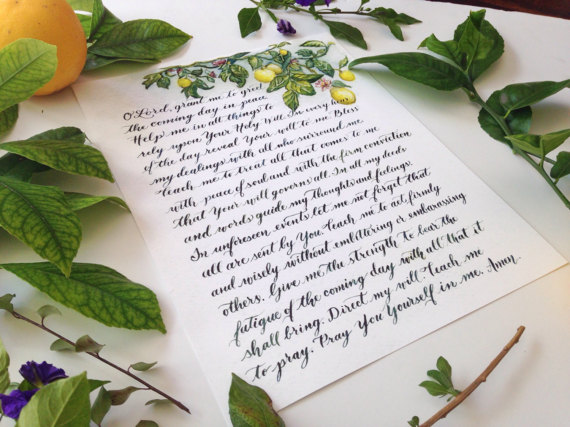 O'Lord, grant me to greet
the coming day in peace
Help me in all things to
rely upon Your Holy Will. In every hour
of the day reveal Your will to me Bless
my dealings with all who surround me
teach me to treat all that comes to me
with peace of soul and with the firm conviction
that Your will governs all. In all my deeds
and words guide my thoughts and feelings.
In unforeseen events let me not forget that
all are sent by You. Teach me to act firmly
and wisely without embittering or embarrassing
others. Give me the strength to bear the
fatigue of the coming day with all that it
shall bring. Direct my will teach me
to pray. Pray You Yourself in me. Amen.